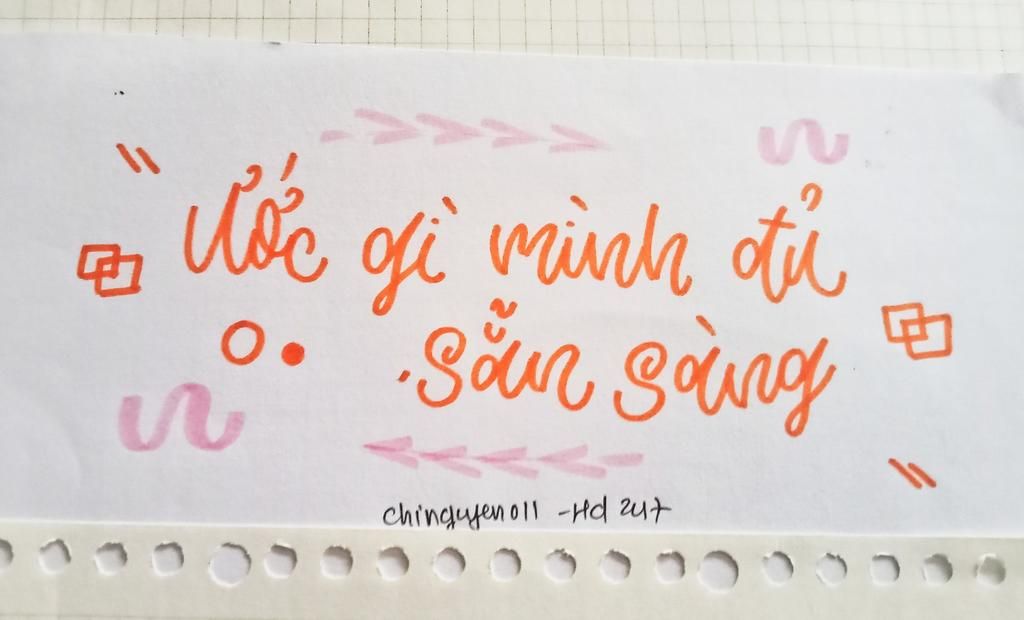 Ước gì mình đủ
sẵn sàng
chinguyen011 -Hd 247